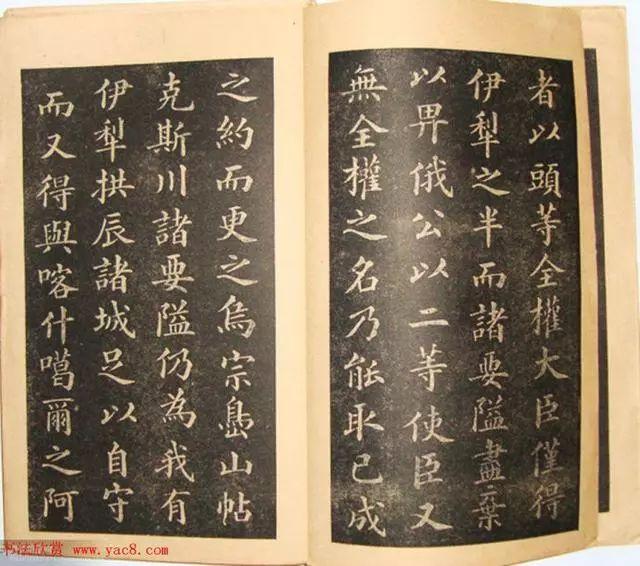 者以頭等全權大臣僅得
伊犁之半而諸要隘盡棄
以畀俄公以二等使臣又
無全權之名乃能取已成
之約而更之烏宗島山帖
克斯川諸要隘仍為我有
伊犁拱辰諸城足以自守
而又得與喀什噶爾之阿
书法欣赏 www.yac8.com